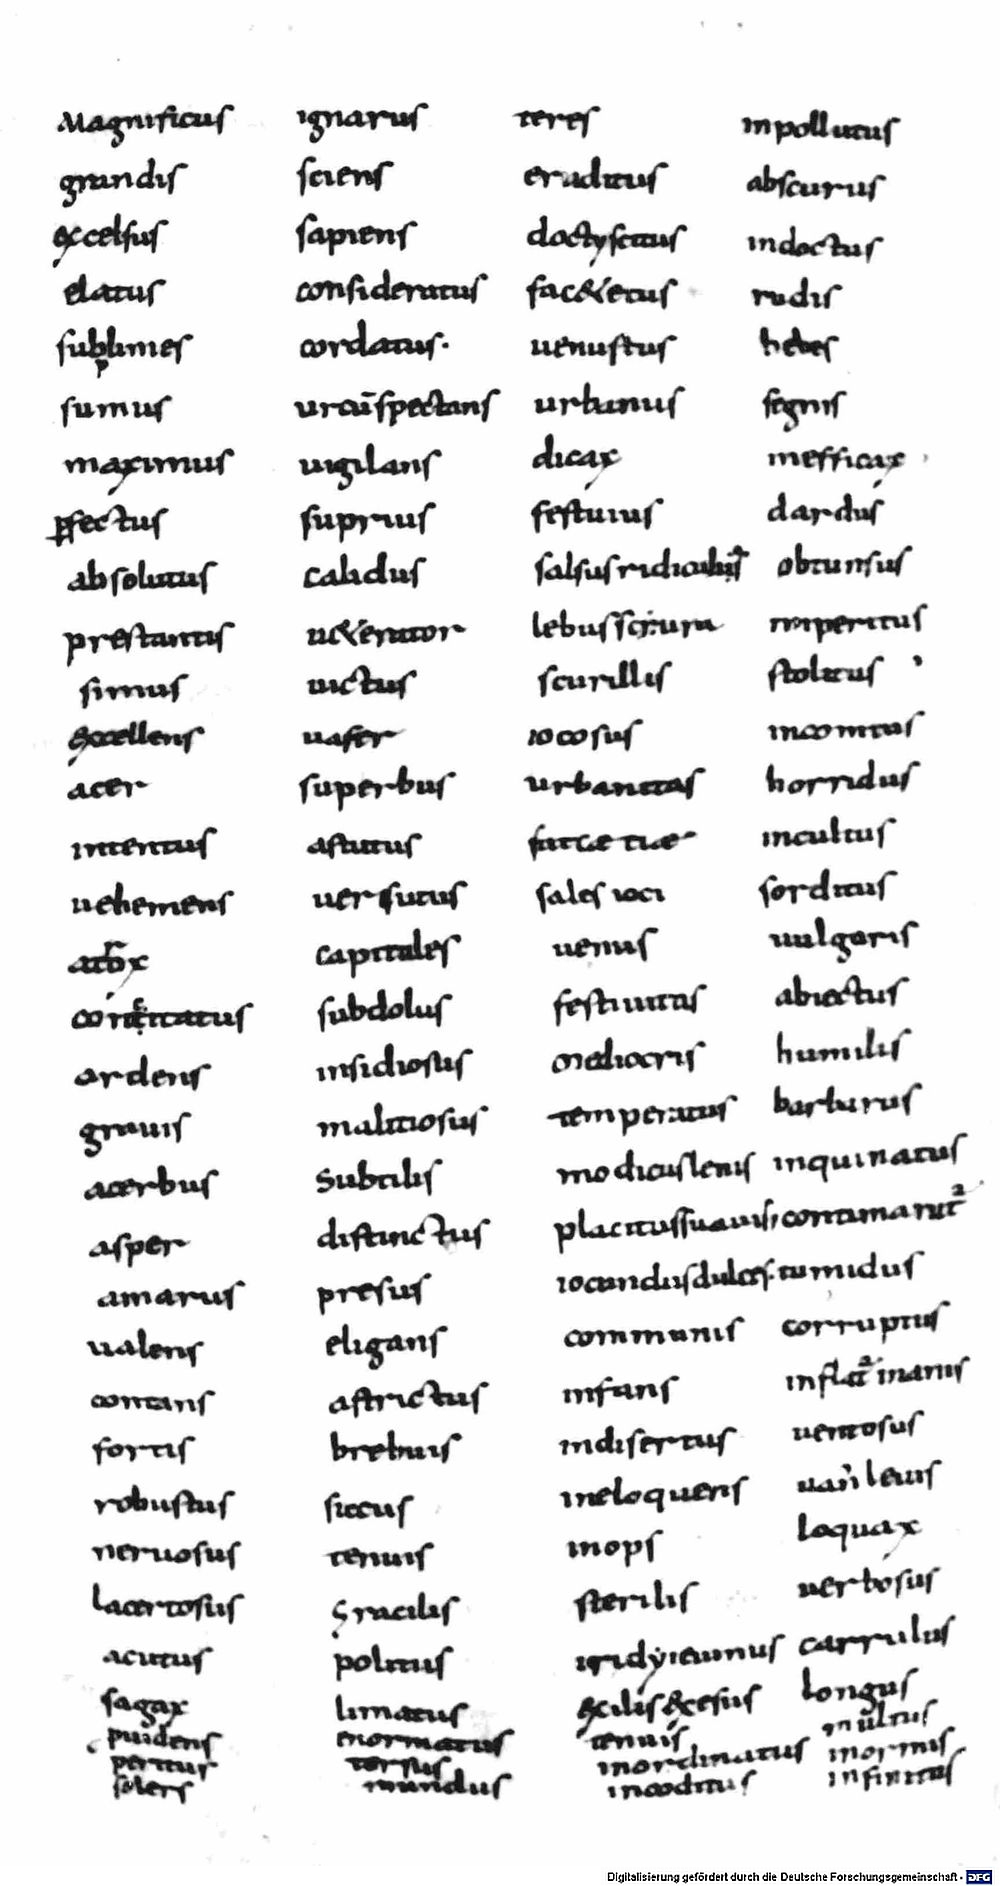 Magnificus
grandis
excelsus
elatus
sublimes
sumus
maximus
pfectus
absolutus
prestantis
simus
excellens
acer
intentus
uehemens
atrox
ardens
grauis
acerbus
asper
amarus
ualens
contans
fortis
robustus
neruosus
lacertosus
acutus
sagax
puidens
peritus
solers
ignarus
sciens
sapiens
consideratus
cordatus.
urcūspectans
uigilans
suprius
calidus
ueterator
uictus
uafer
superbus
astutus
uersutus
capitales
subdolus
insidiosus
malitiosus
Subtilis
distinctus
presus
eligans
astrictus
brebuis
siccus
tenuis
Gracilis
politus
limatus
enormatus
tersus
mundus
teres
eraditus
doctyscitus
fac&etus
uenustus
urbanus
dicax
festuius
salsus
lebus
scurillis
iocosus
urbanitas
sales ioci
uenus
festiuitas
mediocris
temperatus
modicus lenis
placitus suauis
iocundus dulces
communis
infans
indisertus
ineloquens
inops
sterilis
exilis excesus
tenuis
inordinatus
inconditus
inpollutus
abscurus
indoctus
rudis
hebes
segnis
inefficax
dardus
obtunsus
inperitus
stolitus
incomtus
horridus
incultus
sorditus
uulgaris
abiectus
humilis
barbarus
inquinatus
contaminat
tumidus
corruptus
inflat inanis
uentosus
leuis
loquax
uerbosus
carrulus
longus
multus
inormis
infinitus
Digitalisierung gefördert durch die Deutsche Forschungsgemeinschaft - DFG